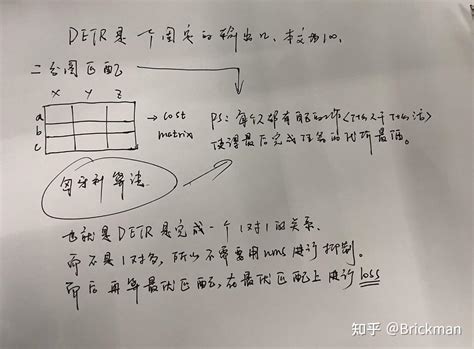 DETR是一个固定的输出n. 本文为100.
二分图匹配
x y z
a
b
c
→ cost matrix
PS: 每个人都有匹配的工作
使得最后完成任务的代价最低。
匈牙利算法
也就是DETR是完成一个1对1的关系.
而不是1对多, 所以不需要用nms进行抑制。
而后再算最优匹配, 在最优匹配上进行loss
知乎 @Brickman